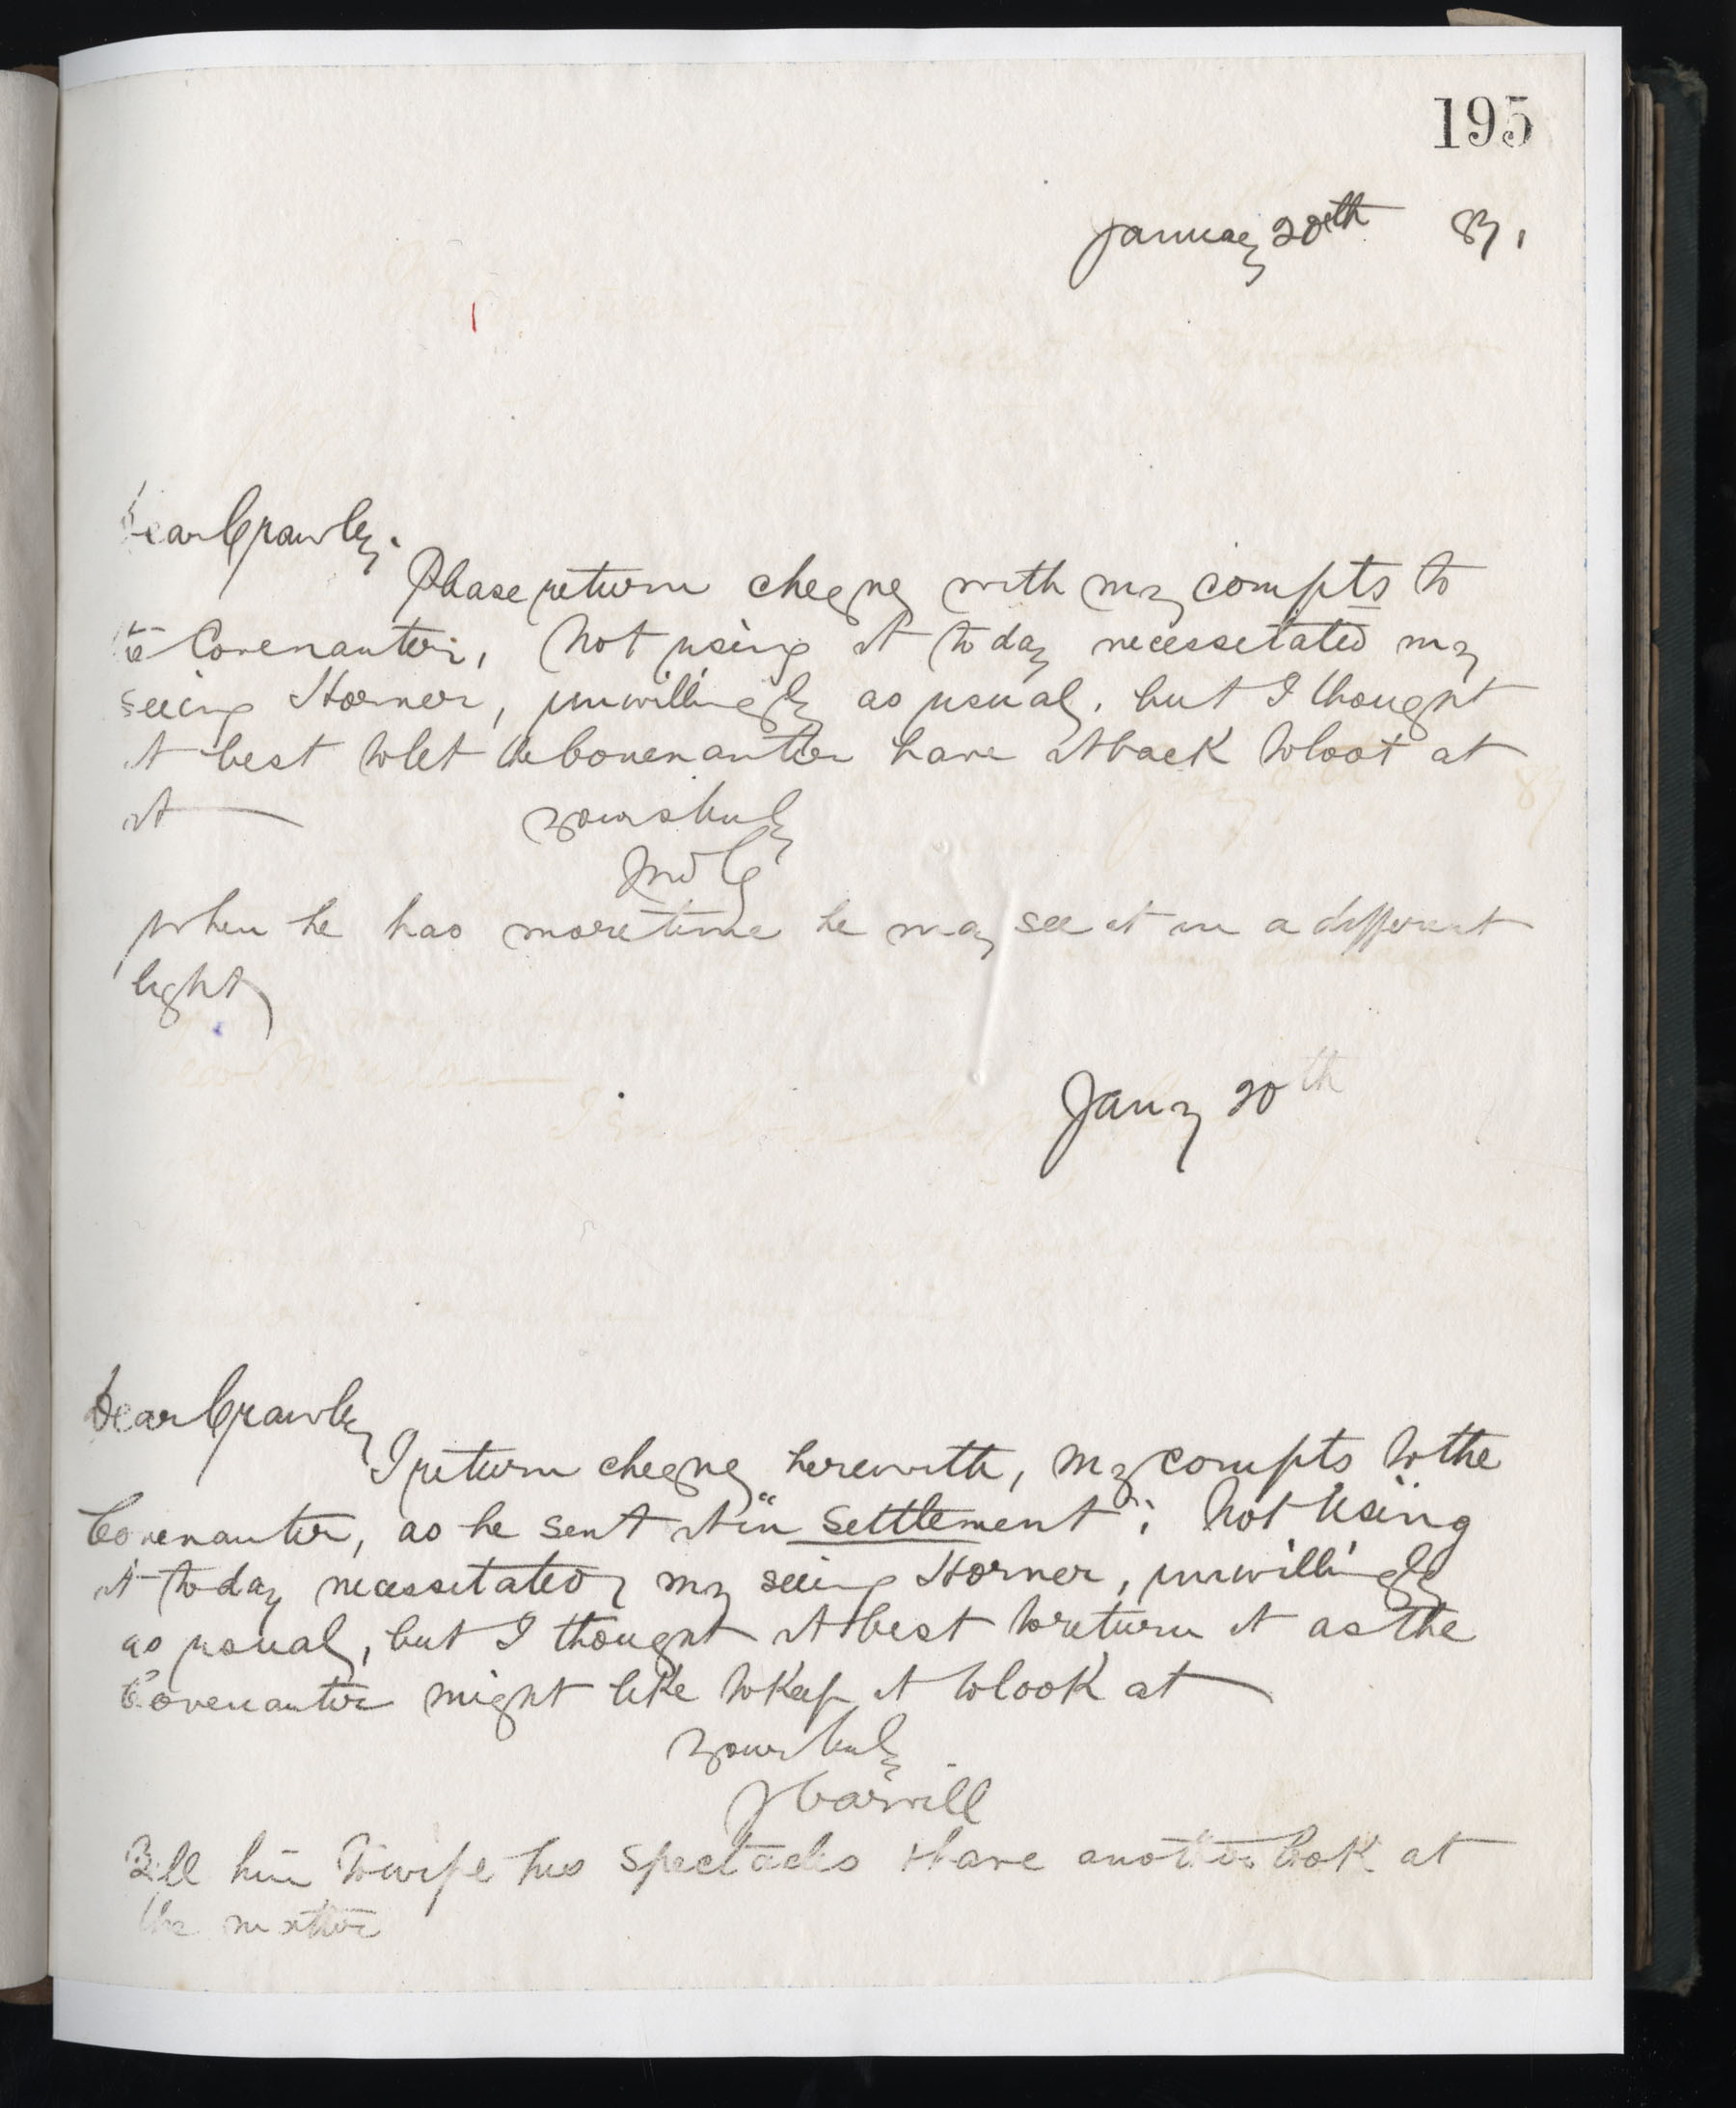 195
January 20th 87,
Dear Crawley.
Please return cheque with my compts to
the Covenanter, Not using it today necessitated my
seeing Horner, unwillingly as usual, but I thought
it best to let the Covenanter have it back to look at
it
yours truly
When he has more time he may see it in a different
light
Jany 20th
Dear Crawley
I return cheque herewith, my compts to the
Covenanter, as he sent it "in settlement"; Not using
it today necessitated my seeing Horner, unwillingly
as usual, but I thought it best to return it as the
Covenanter might like to keep it to look at
yours truly
J Carvill
Tell him to wipe his spectacles & have another look at
the matter